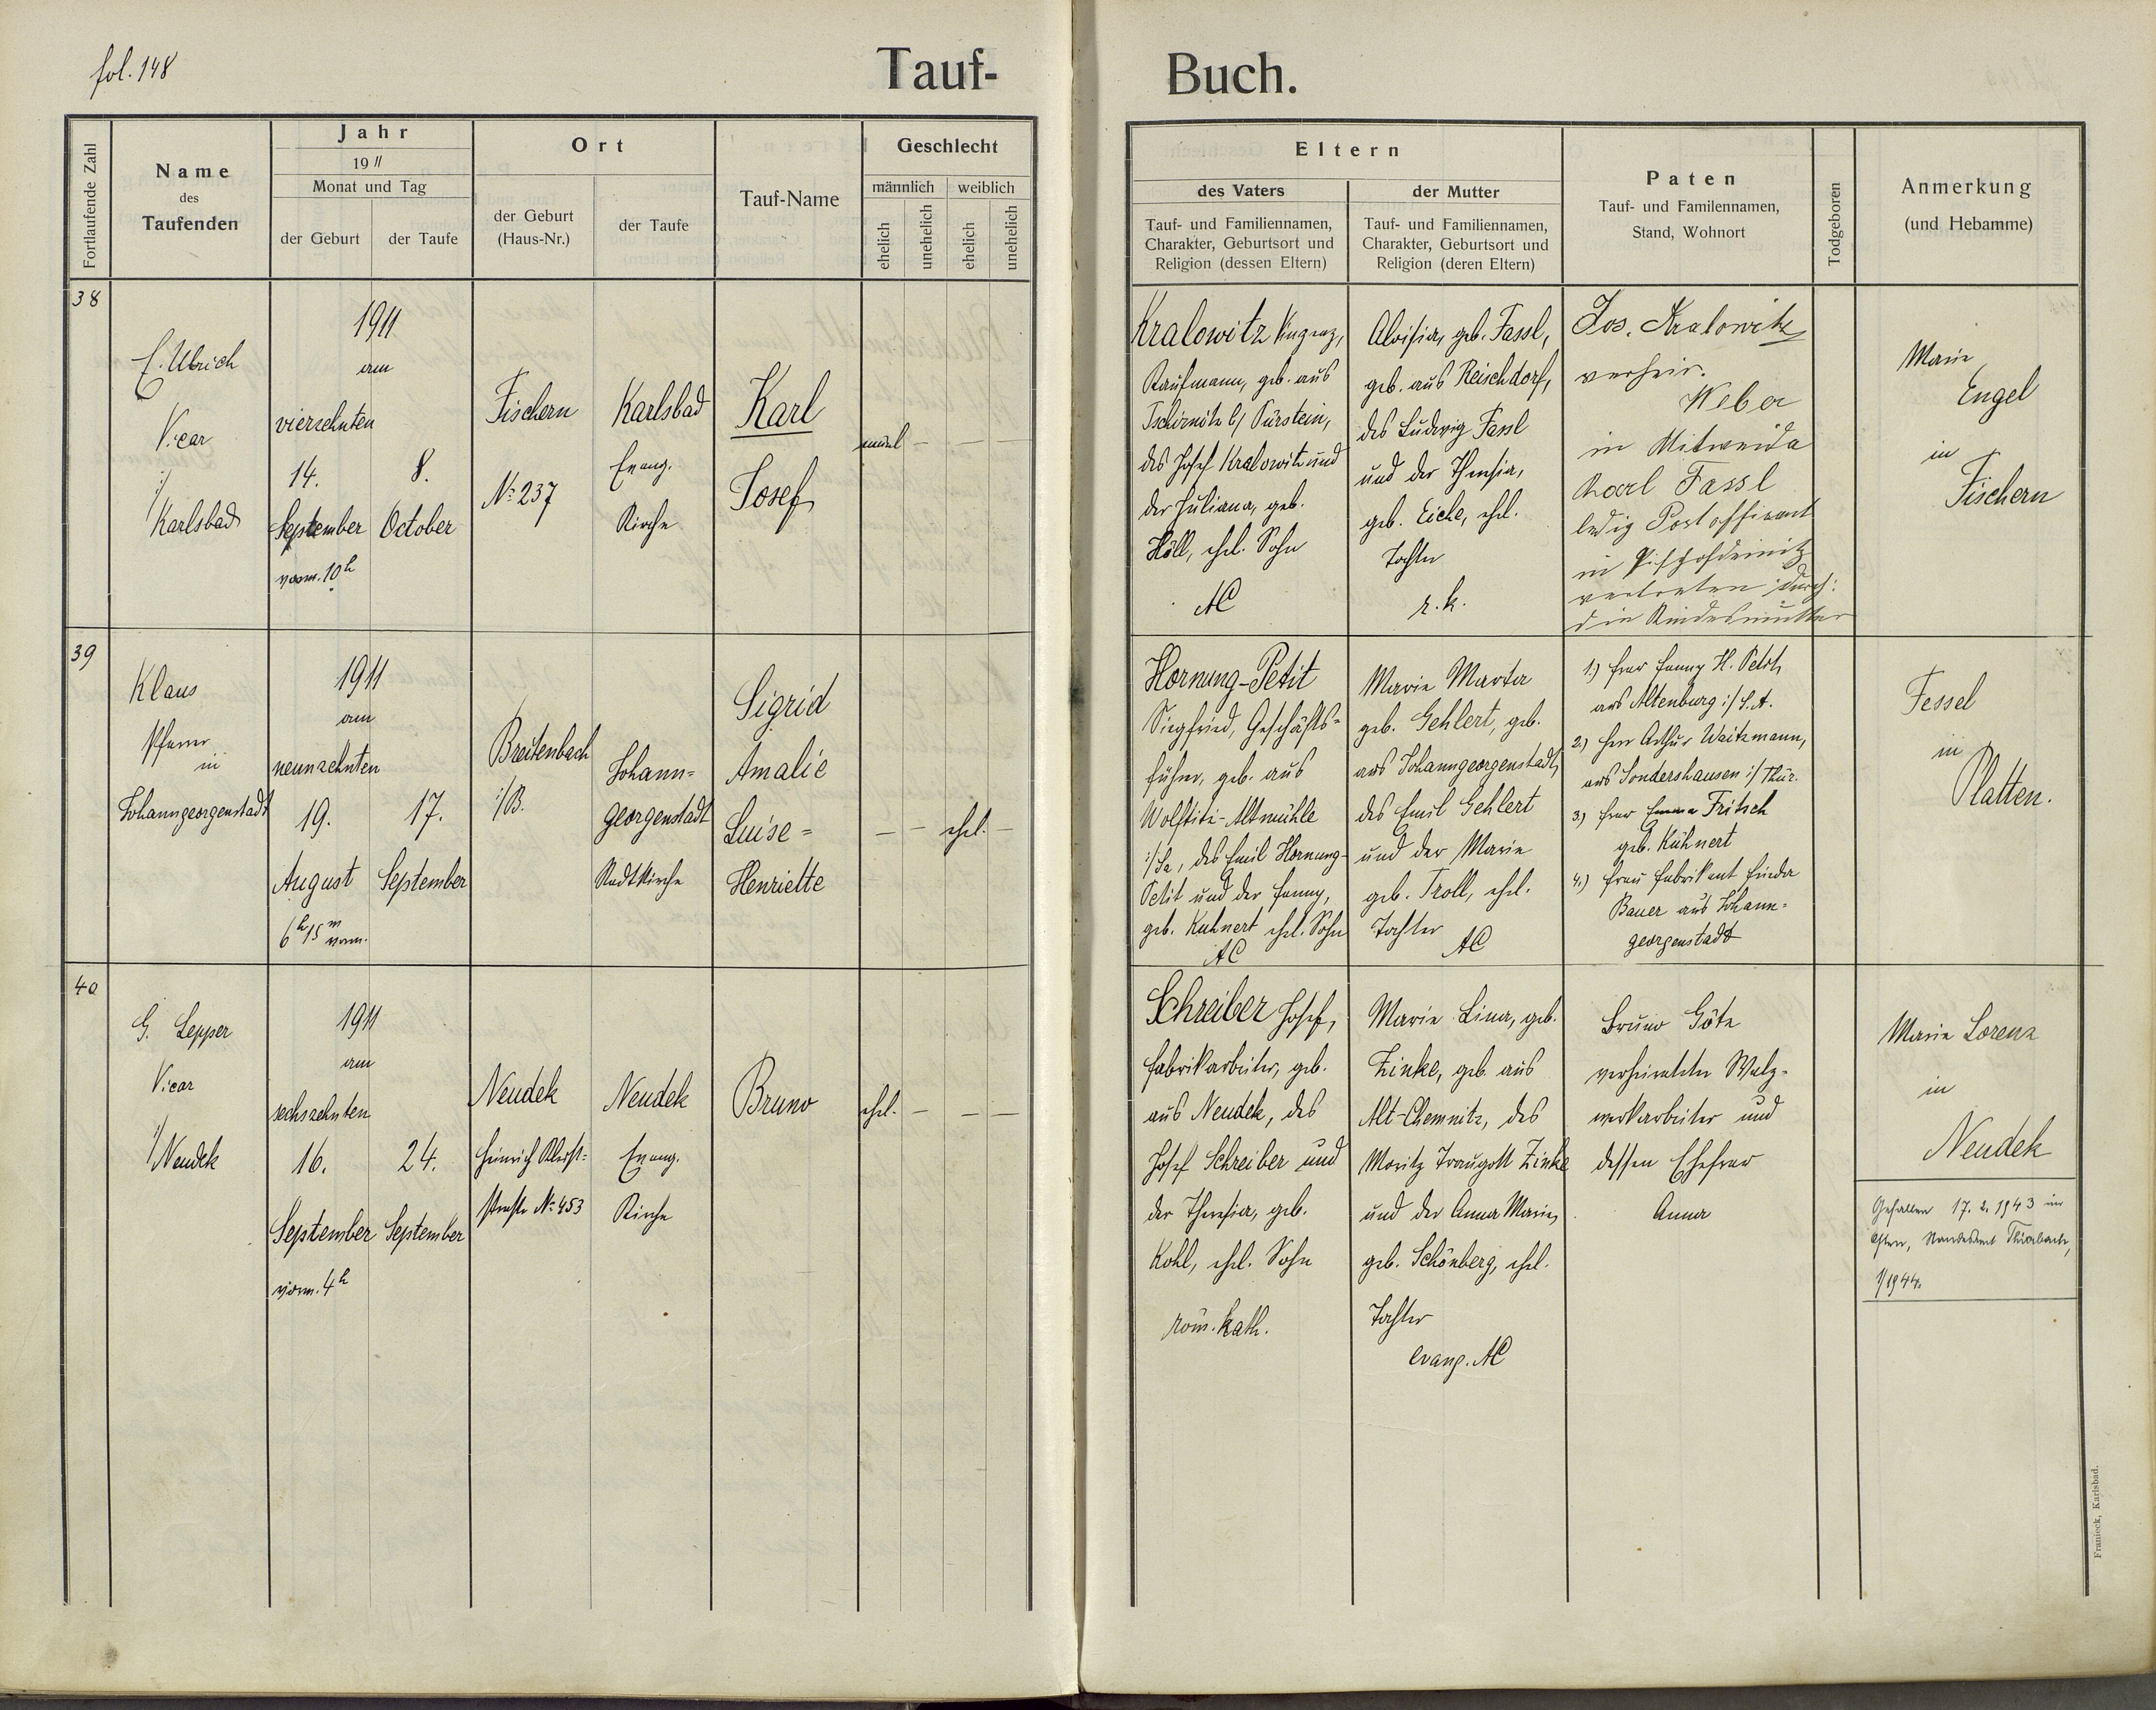 fol. 148
Tauf-
Buch.
Fortlaufende Zahl
Name
des
Taufenden
Jahr
19 11
Monat und Tag
der Geburt
der Taufe
Ort
der Geburt
(Haus-Nr.)
der Taufe
Tauf-Name
Geschlecht
männlich
weiblich
ehelich
unehelich
ehelich
unehelich
Eltern
des Vaters
Tauf- und Familiennamen,
Charakter, Geburtsort und
Religion (dessen Eltern)
der Mutter
Tauf- und Familiennamen,
Charakter, Geburtsort und
Religion (deren Eltern)
Paten
Tauf- und Familennamen,
Stand, Wohnort
Todgeboren
Anmerkung
(und Hebamme)
38
Ulrich
Vicar
:/
Karlsbad
1911
am
vierzehnten
14.
September
vorm. 10h
8.
October
Fischern
No 237
Karlsbad
Evang.
Kirche
Karl
Josef
— — —
Kralowitz
Kaufmann, geb. aus
Tschirnitz b/ Pürstein,
des Josef Kralowitz und
der Juliana, geb.
Höll, ehel. Sohn
AC
Aloisia, geb. Fassl,
geb. aus Reischdorf,
des Ludwig Fassl
und der Theresia,
geb. Eiche, ehel.
Tochter
r. k.
Jos. Kralowitz
verheir.
Weber
in Mitweida
Karl Fassl
ledig Postoffiziant
in
vertreten durch:
die Kindesmutter
Marie
Engel
in
Fischern
39
Klaus
Pfarrer
in
Johanngeorgenstadt
1911
am
neunzehnten
19.
August
6h 15m vorm.
17.
September
Breitenbach
i/B.
Johann-
georgenstadt
Stadtkirche
Sigrid
Amalie
Luise-
Henriette
— — ehel. —
Hornung-Petit
Siegfried, Geschäfts-
führer, geb. aus
i/Sa, des Emil Hornung-
Petit und der Fanny,
geb. Kuhnert ehel. Sohn
AC
Marie Marta
geb. Gehlert, geb.
aus Johanngeorgenstadt,
des Emil Gehlert
und der Marie
geb. Troll, ehel.
Tochter
AC
1.) Frau Fanny H. Petit,
aus Altenburg i/ S.A.
2.) Herr Arthur Waitzmann,
aus Sondershausen i/ Thür.
3.) Frau Emma Fritsch
geb. Kühnert
4.) Frau Fabrikant
Bauer aus Johann-
georgenstadt
Fessel
in
Platten.
40
G. Lepper
Vicar
i/
Neudek
1911
am
sechszehnten
16.
September
vorm. 4h
24.
September
Neudek
Heinrich Kleist-
strasse No 453
Neudek
Evang.
Kirche
Bruno
ehel. — — —
Schreiber Josef,
Fabrikarbeiter, geb.
aus Neudek, des
Josef Schreiber und
der Theresia, geb.
Kohl, ehel. Sohn
röm. kath.
Marie Lina, geb.
Zinke, geb. aus
Alt-Chemnitz, des
Moritz Traugott Zinke
und der Anna Marie,
geb. Schönberg, ehel.
Tochter
evang. AC
Bruno Göte
verheirateter Walz-
werkarbeiter und
dessen Ehefrau
Anna
Marie Lorenz
in
Neudek
Gefallen 17. 2. 1943 im
Osten, Standesamt
1/1944.
Franieck, Karlsbad.